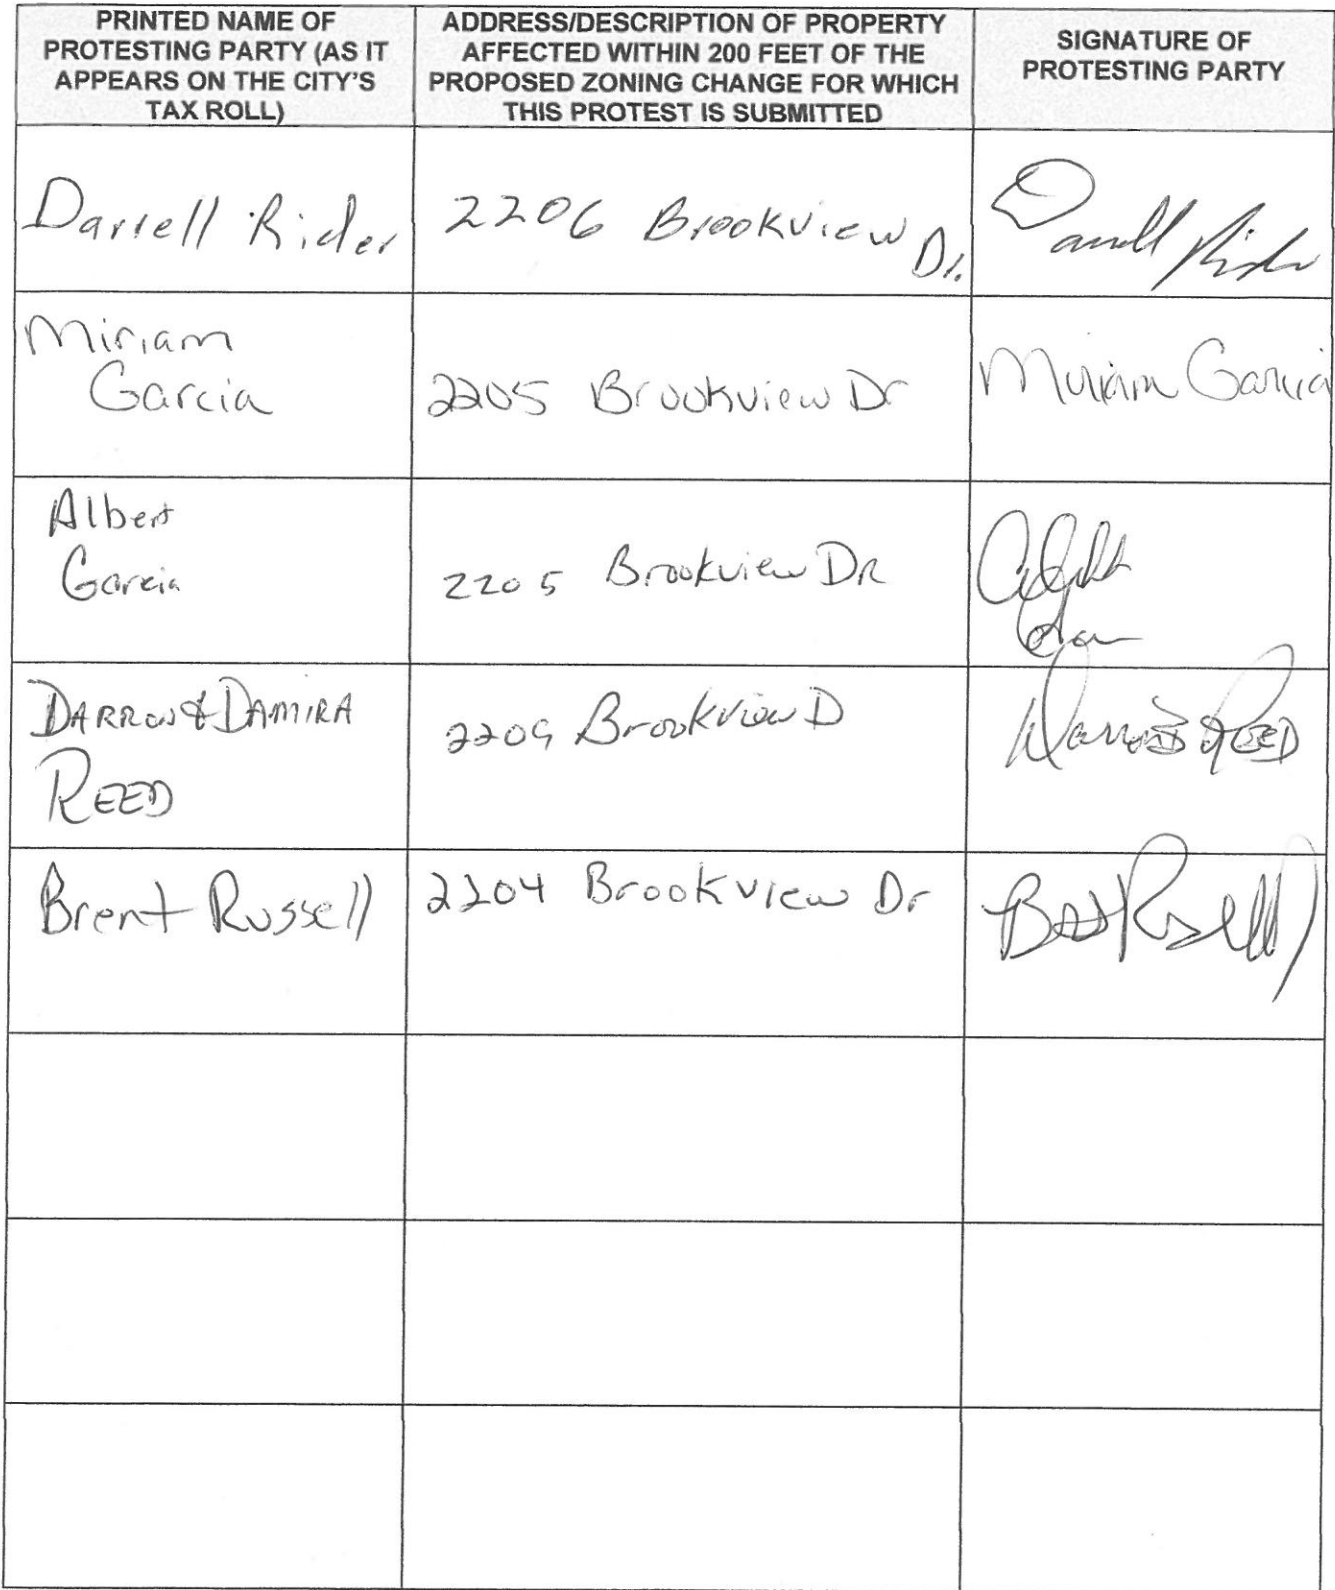 PRINTED NAME OF
PROTESTING PARTY (AS IT
APPEARS ON THE CITY'S
TAX ROLL)
ADDRESS/DESCRIPTION OF PROPERTY
AFFECTED WITHIN 200 FEET OF THE
PROPOSED ZONING CHANGE FOR WHICH
THIS PROTEST IS SUBMITTED
SIGNATURE OF
PROTESTING PARTY
Darrell Rider
2206 Brookview
Dr.
Darrell Rider
Miriam
Garcia
2205 Brookview Dr
Miriam Garcia
Albert
Garcia
2205 Brookview DR
DARRON & DAMIRA
REED
2209 Brookview D
REED
Brent Russell
2204 Brookview Dr
Brent Russell